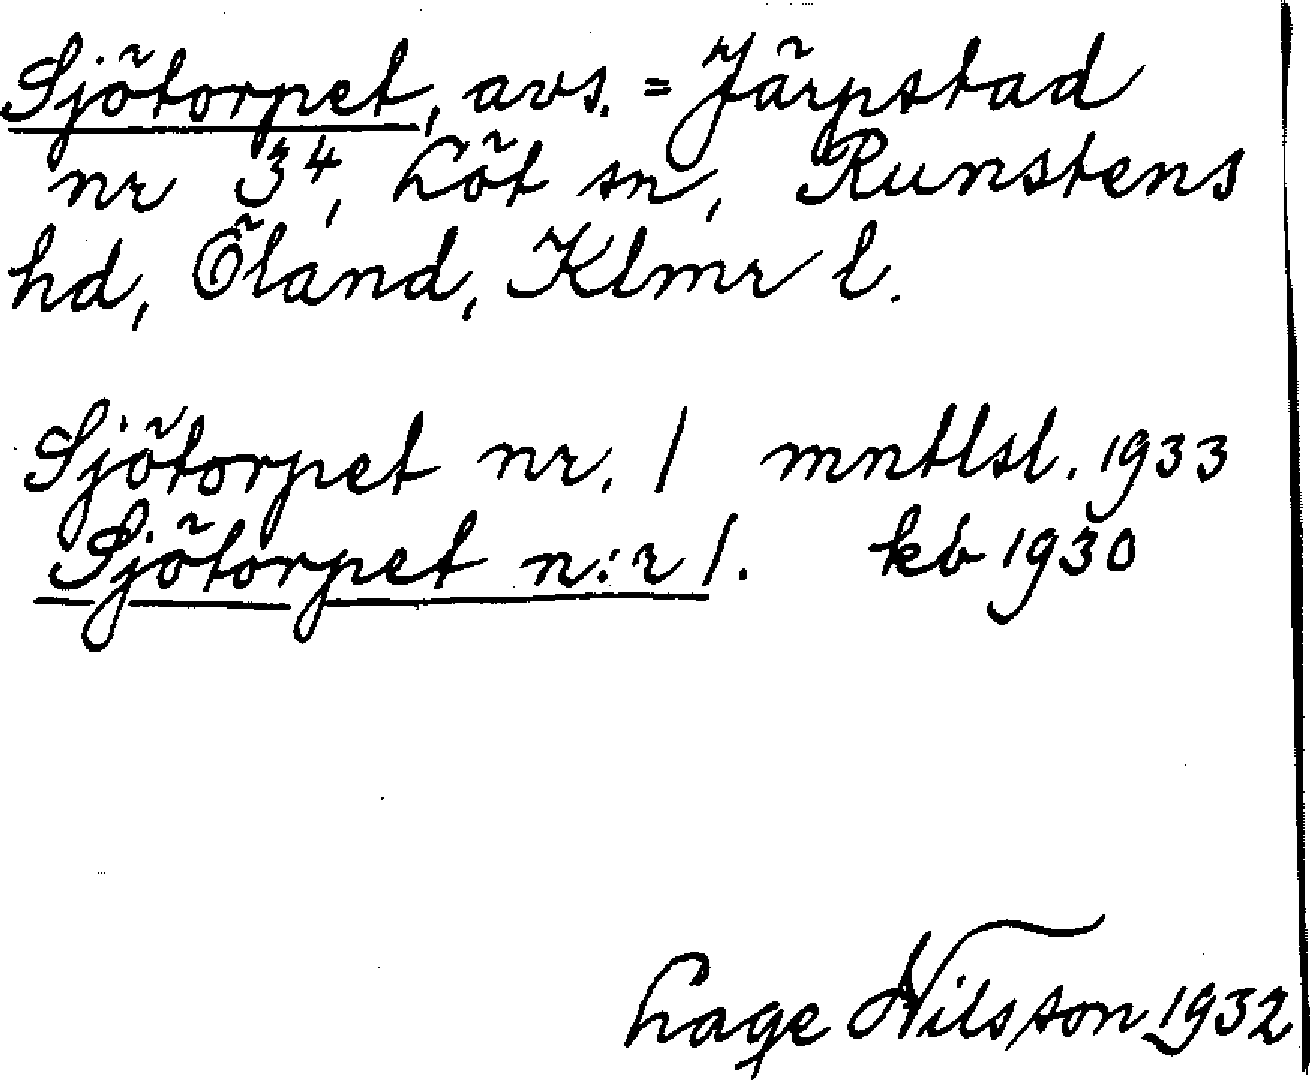 Sjötorpet, avs. = Järpstad
nr 3⁴, Löt sn, Runstens
hd, Öland, Klmr l.
Sjötorpet nr. 1 mntlsl. 1933
Sjötorpet n:r 1. kb 1930
Lage Nilsson 1932